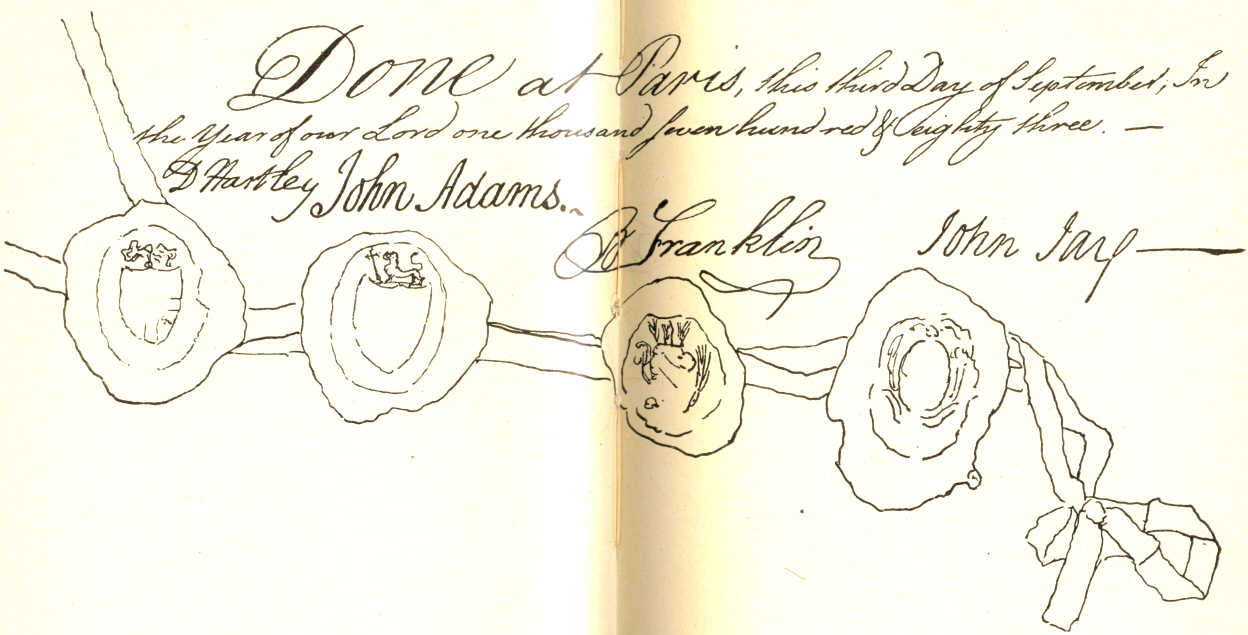 Done at Paris, this third Day of September, In
the Year of our Lord one thousand seven hundred & eighty three. —
D Hartley John Adams.
B Franklin John Jay